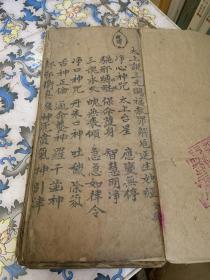 太上説三元賜福赦罪解厄延生妙經
淨心神咒 太上台星 應變無停
驅邪縛魅 保命護身 智慧明淨
三魂永久 魄無喪傾 急急如律令
淨口神咒 丹朱口神 吐穢除氛
舌神正倫 通命養神 羅千齒神
却邪衛真 喉神虎賁 氣神引津